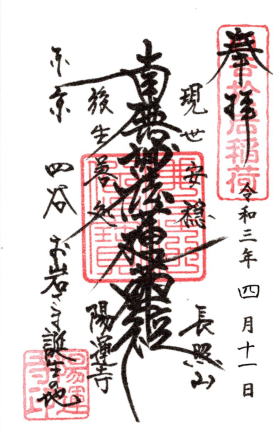 奉拝
令和三年 四月十一日
現世安穏 長照山
南無妙法蓮華経
後生善処 陽運寺
東京 四谷 お岩さま誕生の地
陽運寺印